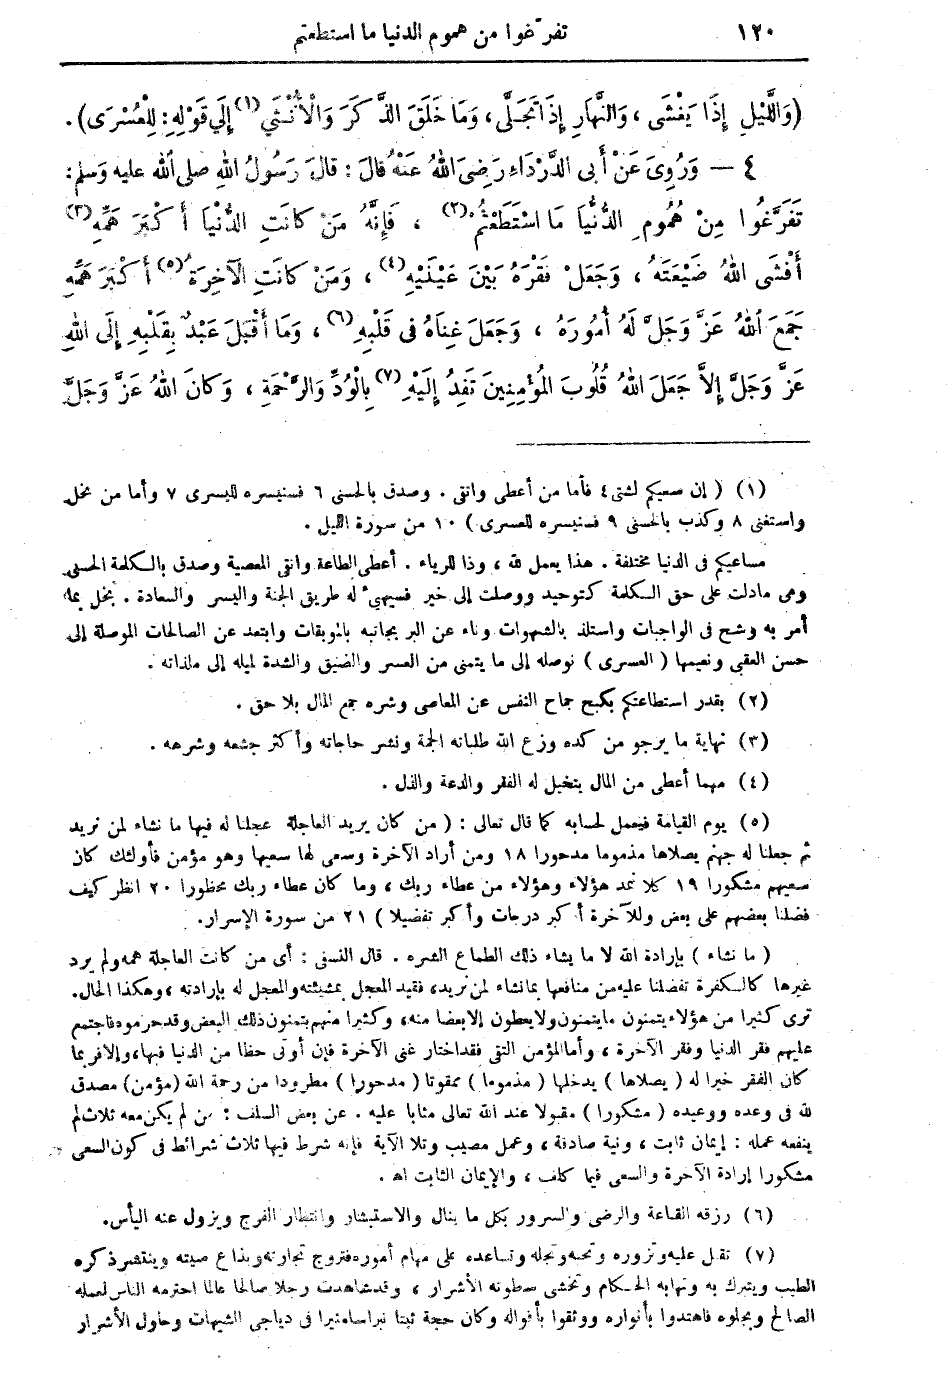 ١٢٠ تفرّغوا من هموم الدنيا ما استطعتم
(وَاللَّيْلِ إِذَا يَغْشَى ، وَالنَّهَارِ إِذَا تَجَلَّى ، وَمَا خَلَقَ الذَّكَرَ وَالْأُنْثَى (١) إِلَى قَوْلِهِ : لِلْعُسْرَى ) .
٤ — وَرُوِىَ عَنْ أَبِى الدَّرْدَاءِ رَضِىَ اللهُ عَنْهُ قَالَ : قَالَ رَسُولُ اللهِ صلى الله عليه وسلم :
تَفَرَّغُوا مِنْ هُمُومِ الدُّنْيَا مَا اسْتَطَعْتُمْ (٢) ، فَإِنَّهُ مَنْ كَانَتِ الدُّنْيَا أَكْبَرَ هَمِّهِ (٣)
أَفْشَى اللهُ ضَيْعَتَهُ ، وَجَعَلَ فَقْرَهُ بَيْنَ عَيْنَيْهِ (٤) ، وَمَنْ كَانَتِ الْآخِرَةُ (٥) أَكْبَرَ هَمِّهِ
جَمَعَ اللهُ عَزَّ وَجَلَّ لَهُ أُمُورَهُ ، وَجَعَلَ غِنَاهُ فِى قَلْبِهِ (٦) ، وَمَا أَقْبَلَ عَبْدٌ بِقَلْبِهِ إِلَى اللهِ
عَزَّ وَجَلَّ إِلاَّ جَعَلَ اللهُ قُلُوبَ الْمُؤْمِنِينَ تَفِدُ إِلَيْهِ (٧) بِالْوُدِّ وَالرَّحْمَةِ ، وَكَانَ اللهُ عَزَّ وَجَلَّ
(١) ( إن سعيكم لشتى ٤ فأما من أعطى واتقى . وصدق بالحسنى ٦ فسنيسره لليسرى ٧ وأما من بخل
واستغنى ٨ وكذب بالحسنى ٩ فسنيسره للعسرى ) ١٠ من سورة الليل .
مساعيكم فى الدنيا مختلفة . هذا يعمل لله ، وذا للرياء . أعطى الطاعة واتقى المعصية وصدق بالكلمة الحسنى
وهى مادلت على حق الكلمة كتوحيد ووصلت إلى خير فسيهيئ له طريق الجنة واليسر والسعادة . بخل بما
أمر به وشح فى الواجبات واستلذ بالشهوات وناء عن البر بجانبه بالموبقات وابتعد عن الصالحات الموصلة إلى
حسن العقبى ونعيمها ( العسرى ) نوصله إلى ما يتمنى من العسر والضيق والشدة لميله إلى ملذاته .
(٢) بقدر استطاعتكم بكبح جماح النفس عن المعاصى وشره جمع المال بلا حق .
(٣) نهاية ما يرجو من كده وزع الله طلباته الجمة ونشر حاجاته وأكثر جشعه وشرهه .
(٤) مهما أعطى من المال يتخيل له الفقر والدعة والذل .
(٥) يوم القيامة فيعمل لحسابه كما قال تعالى : ( من كان يريد العاجلة عجلنا له فيها ما نشاء لمن نريد
ثم جعلنا له جهنم يصلاها مذموما مدحورا ١٨ ومن أراد الآخرة وسعى لها سعيها وهو مؤمن فأولئك كان
سعيهم مشكورا ١٩ كلا نمد هؤلاء وهؤلاء من عطاء ربك ، وما كان عطاء ربك محظورا ٢٠ انظر كيف
فضلنا بعضهم على بعض وللآخرة أكبر درجات وأكبر تفضيلا ) ٢١ من سورة الإسراء.
( ما نشاء ) بإرادة الله لا ما يشاء ذلك الطماع الشره . قال النسفى : أى من كانت العاجلة همه ولم يرد
غيرها كالكفرة تفضلنا عليه من منافعها بما نشاء لمن نريد، فقيد المعجل بمشيئته والمعجل له بإرادته ، وهكذا الحال.
ترى كثيرا من هؤلاء يتمنون ما يتمنون ولا يعطون إلا بعضا منه، وكثيرا منهم يتمنون ذلك البعض وقد حرموه فاجتمع
عليهم فقر الدنيا وفقر الآخرة ، وأما المؤمن التقى فقد اختار غنى الآخرة فإن أوتى حظا من الدنيا فبها، وإلا فربما
كان الفقر خيرا له ( يصلاها ) يدخلها ( مذموما ) ممقوتا ( مدحورا ) مطرودا من رحمة الله (مؤمن) مصدق
لله فى وعده ووعيده ( مشكورا ) مقبولا عند الله تعالى مثابا عليه . عن بعض السلف : من لم يكن معه ثلاث لم
ينفعه عمله : إيمان ثابت ، ونية صادقة ، وعمل مصيب وتلا الآية فإنه شرط فيها ثلاث شرائط فى كون السعى
مشكورا إرادة الآخرة والسعى فيما كلف ، والإيمان الثابت اه .
(٦) رزقه القناعة والرضى والسرور بكل ما ينال والاستبشار وانتظار الفرج ويزول عنه اليأس.
(٧) تقبل عليه وتزوره وتحبه وتجله وتساعده على مهام أموره فتروج تجارته ويذاع صيته وينتشر ذكره
الطيب ويتبرك به وتهابه الحكام وتخشى سطوته الأشرار ، وقد شاهدت رجلا صالحا عالما احترمه الناس لعمله
الصالح وبجلوه فاهتدوا بأنواره ووثقوا بأقواله وكان حجة ثبتا نبراسا منيرا فى دياجى الشبهات وحاول الأشرار